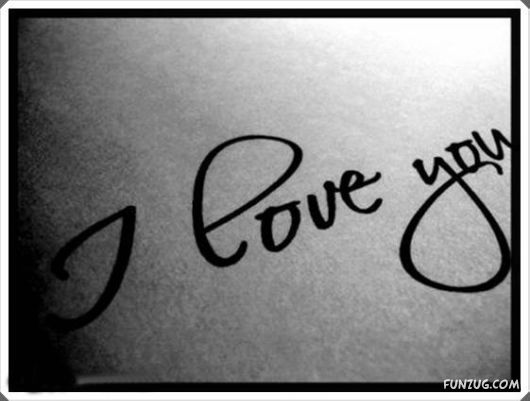 I love you
FUNZUG.COM